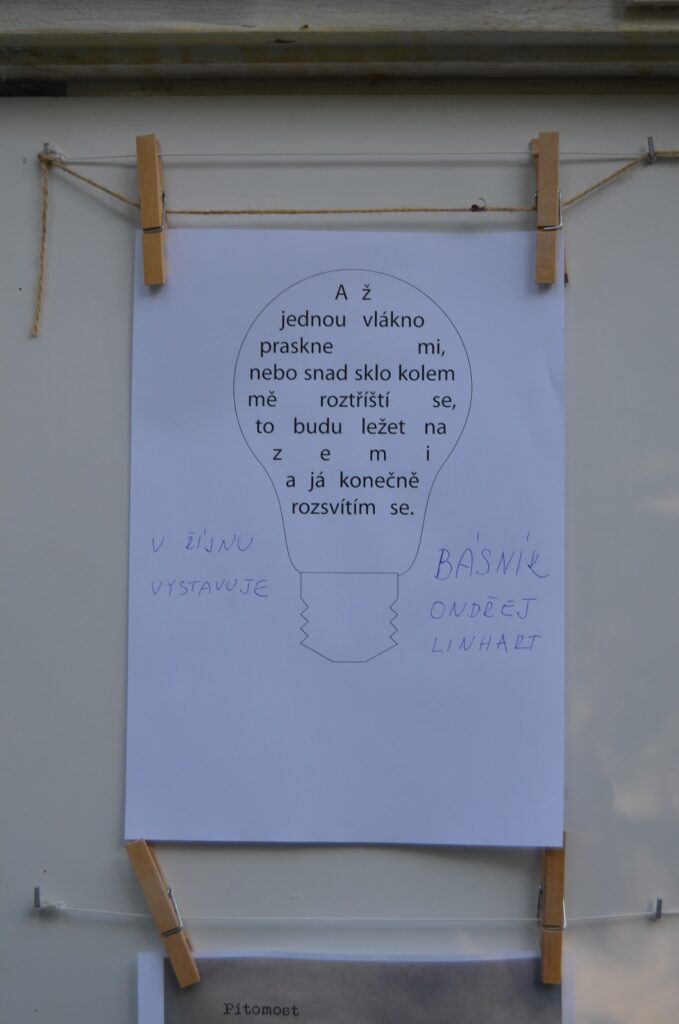 A ž
jednou vlákno
praskne mi,
nebo snad sklo kolem
mě roztříští se,
to budu ležet na
z e m i
a já konečně
rozsvítím se.
V ŘÍJNU
VYSTAVUJE
BÁSNÍK
ONDŘEJ
LINHART
Pitomost